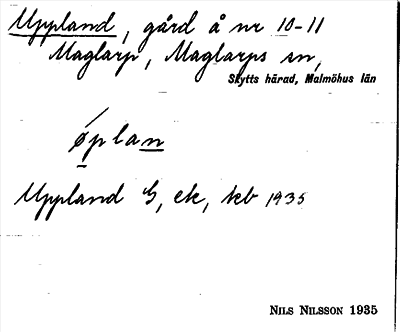 Uppland, gård å nr 10-11
Maglarp, Maglarps sn,
Skytts härad, Malmöhus län
øplan
Uppland G, ek, kb 1935
NILS NILSSON 1935